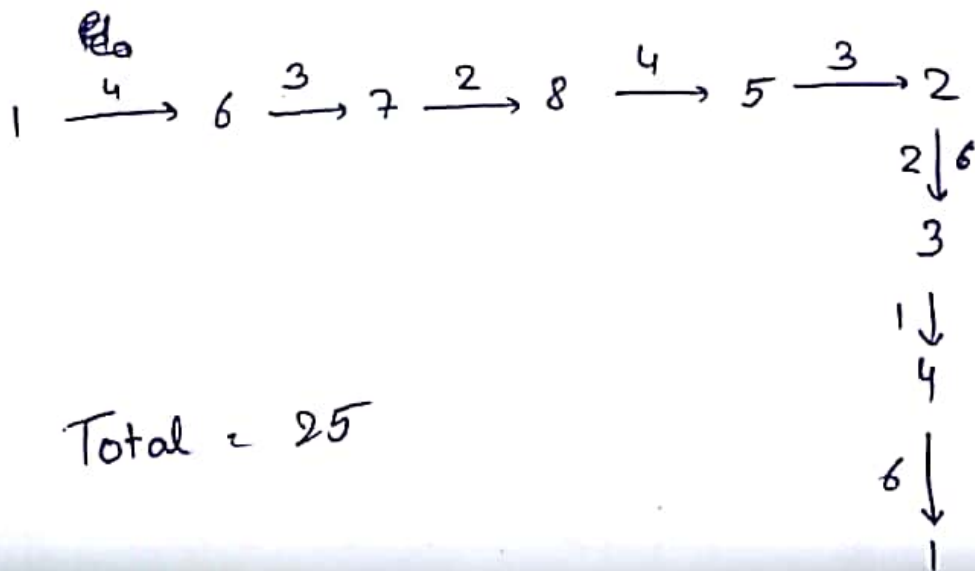 1 —4→ 6 —3→ 7 —2→ 8 —4→ 5 —3→ 2
2 ↓ 6
3
1 ↓
4
Total = 25
6 ↓
1